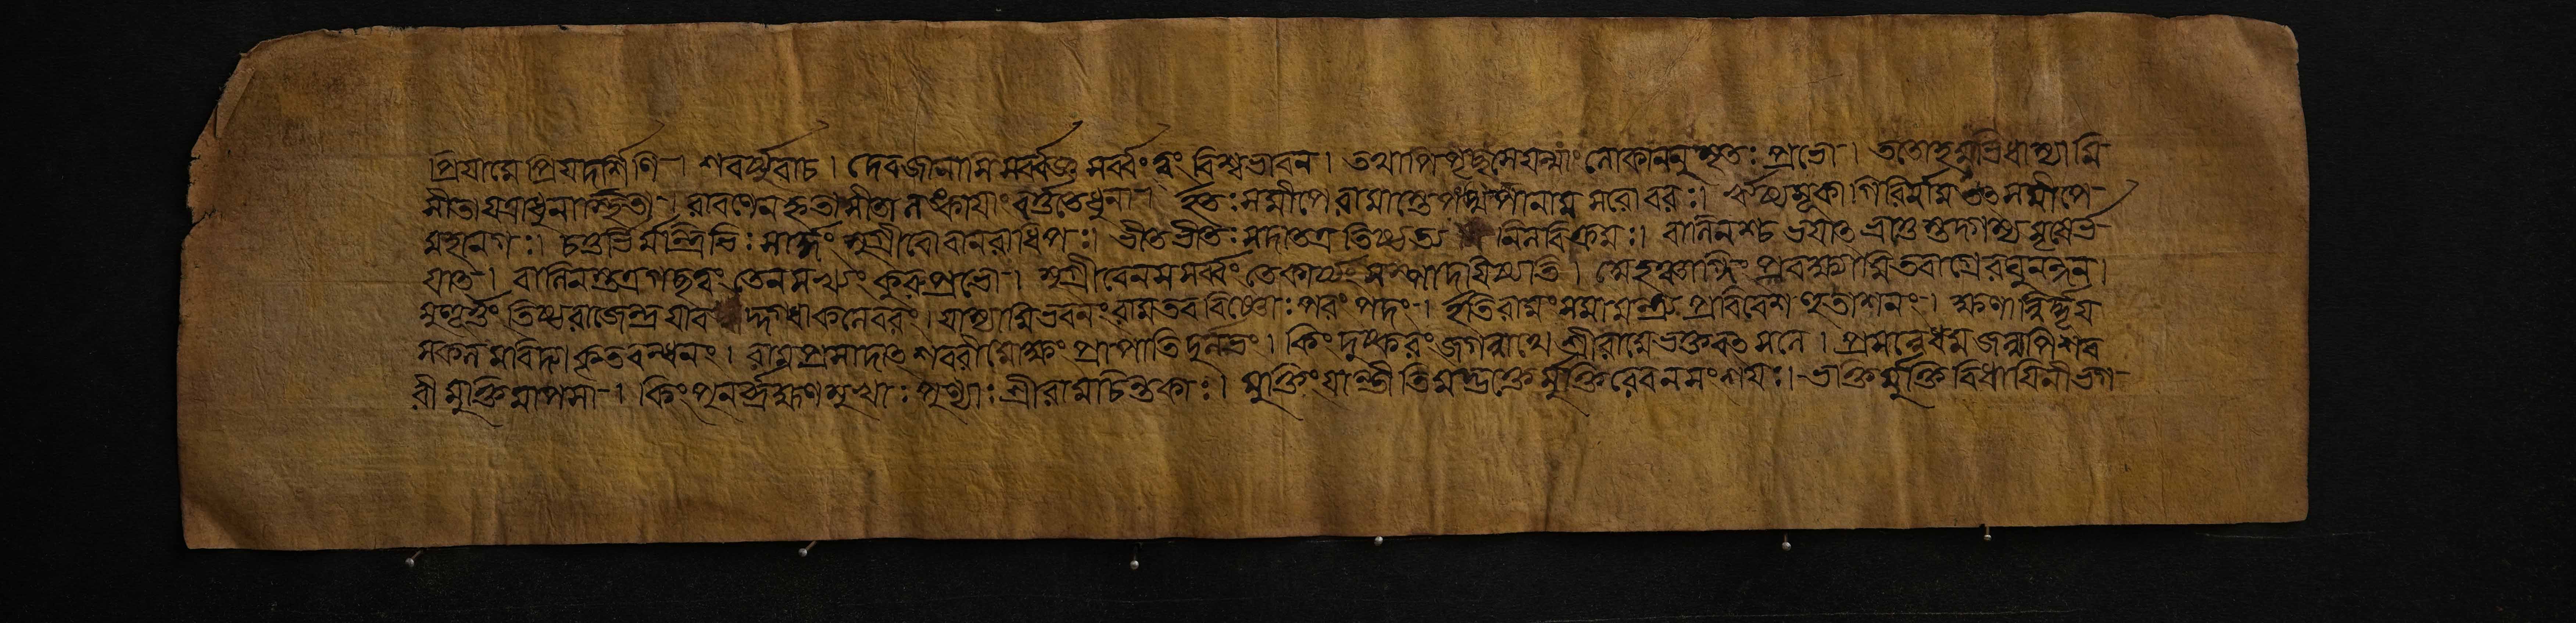 প্রিয়ামে প্রিয়দর্শিণি । শবর্য্যুবাচ । দেবজানাসি সর্ব্বজ্ঞ সর্ব্বং ত্বং বিশ্বভাবন । তথাপিপৃচ্ছসেযন্মাং লোকাননুসৃতঃ প্রভো । ততোহমভিধাস্যামি
সীতাযত্রাধুনাস্থিতা । রাবণেনহৃতাসীতা লঙ্কাযাংবর্ত্ততেধুনা । ইতঃ সমীপেরামাস্তেপম্পানাম সরোবরঃ । ঋষ্যমূকা গিরির্নামতত্সমীপে
মহানগঃ । চতুর্ভির্মন্ত্রিভিঃ সার্দ্ধং সুগ্রীবোবানরাধিপঃ । ভীতভীতঃ সদাতত্র তিষ্ঠত্য মিতবিক্রমঃ । বালিনশ্চ ভযাত্ ভ্রাতুস্তদগম্য মৃষের্ভ
যাত্ । বালিনস্তত্রগচ্ছত্বং তেনসখ্যং কুরুপ্রভো । সুগ্রীবেনসসর্ব্বংতেকার্য্যং সম্পাদযিষ্যতি । অহমগ্নিং প্রবেক্ষ্যামিতবাগ্রেরঘুনন্দন ।
মুহূর্ত্তং তিষ্ঠরাজেন্দ্র যাব দ্দগ্ধাকলেবরং । যাস্যামিভবনং রামতব বিষ্ণোঃ পরং পদং । ইতিরামং সমামন্ত্র্য প্রবিবেশ হুতাশনং । ক্ষণান্নির্দ্ধূয
সকল মবিদ্যা কৃতবন্ধনং । রামপ্রসাদাত্ শবরীমোক্ষং প্রাপাতিদুর্লভং । কিং দুষ্করং জগন্নাথে শ্রীরামেভক্তবত্সলে । প্রসন্নেধমজন্মাপিশব
রী মুক্তিমাপসা । কিংপুনর্ব্রাহ্মণামুখ্যাঃ পুণ্যাঃ শ্রীরামচিন্তকাঃ । মুক্তিংযান্তীতিমদ্ভক্তির্মুক্তিরেবনসংশযঃ । ভক্তির্মুক্তিবিধাযিনীভগ